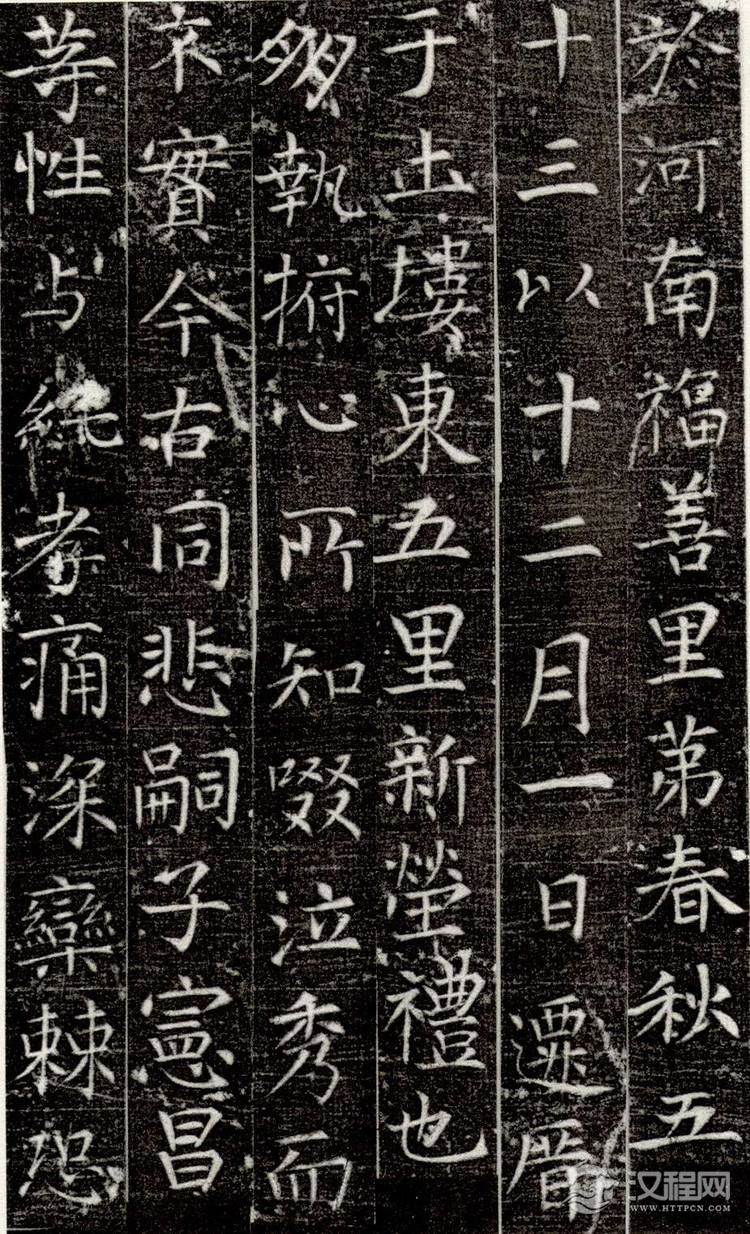 於河南福善里第春秋五
十三以十二月一日遷厝
于土塿東五里新塋禮也
夘執拊心所知啜泣秀而
不實今古同悲嗣子憲昌
等性与純孝痛深欒棘恐
汉程网
WWW.HTTPCN.COM